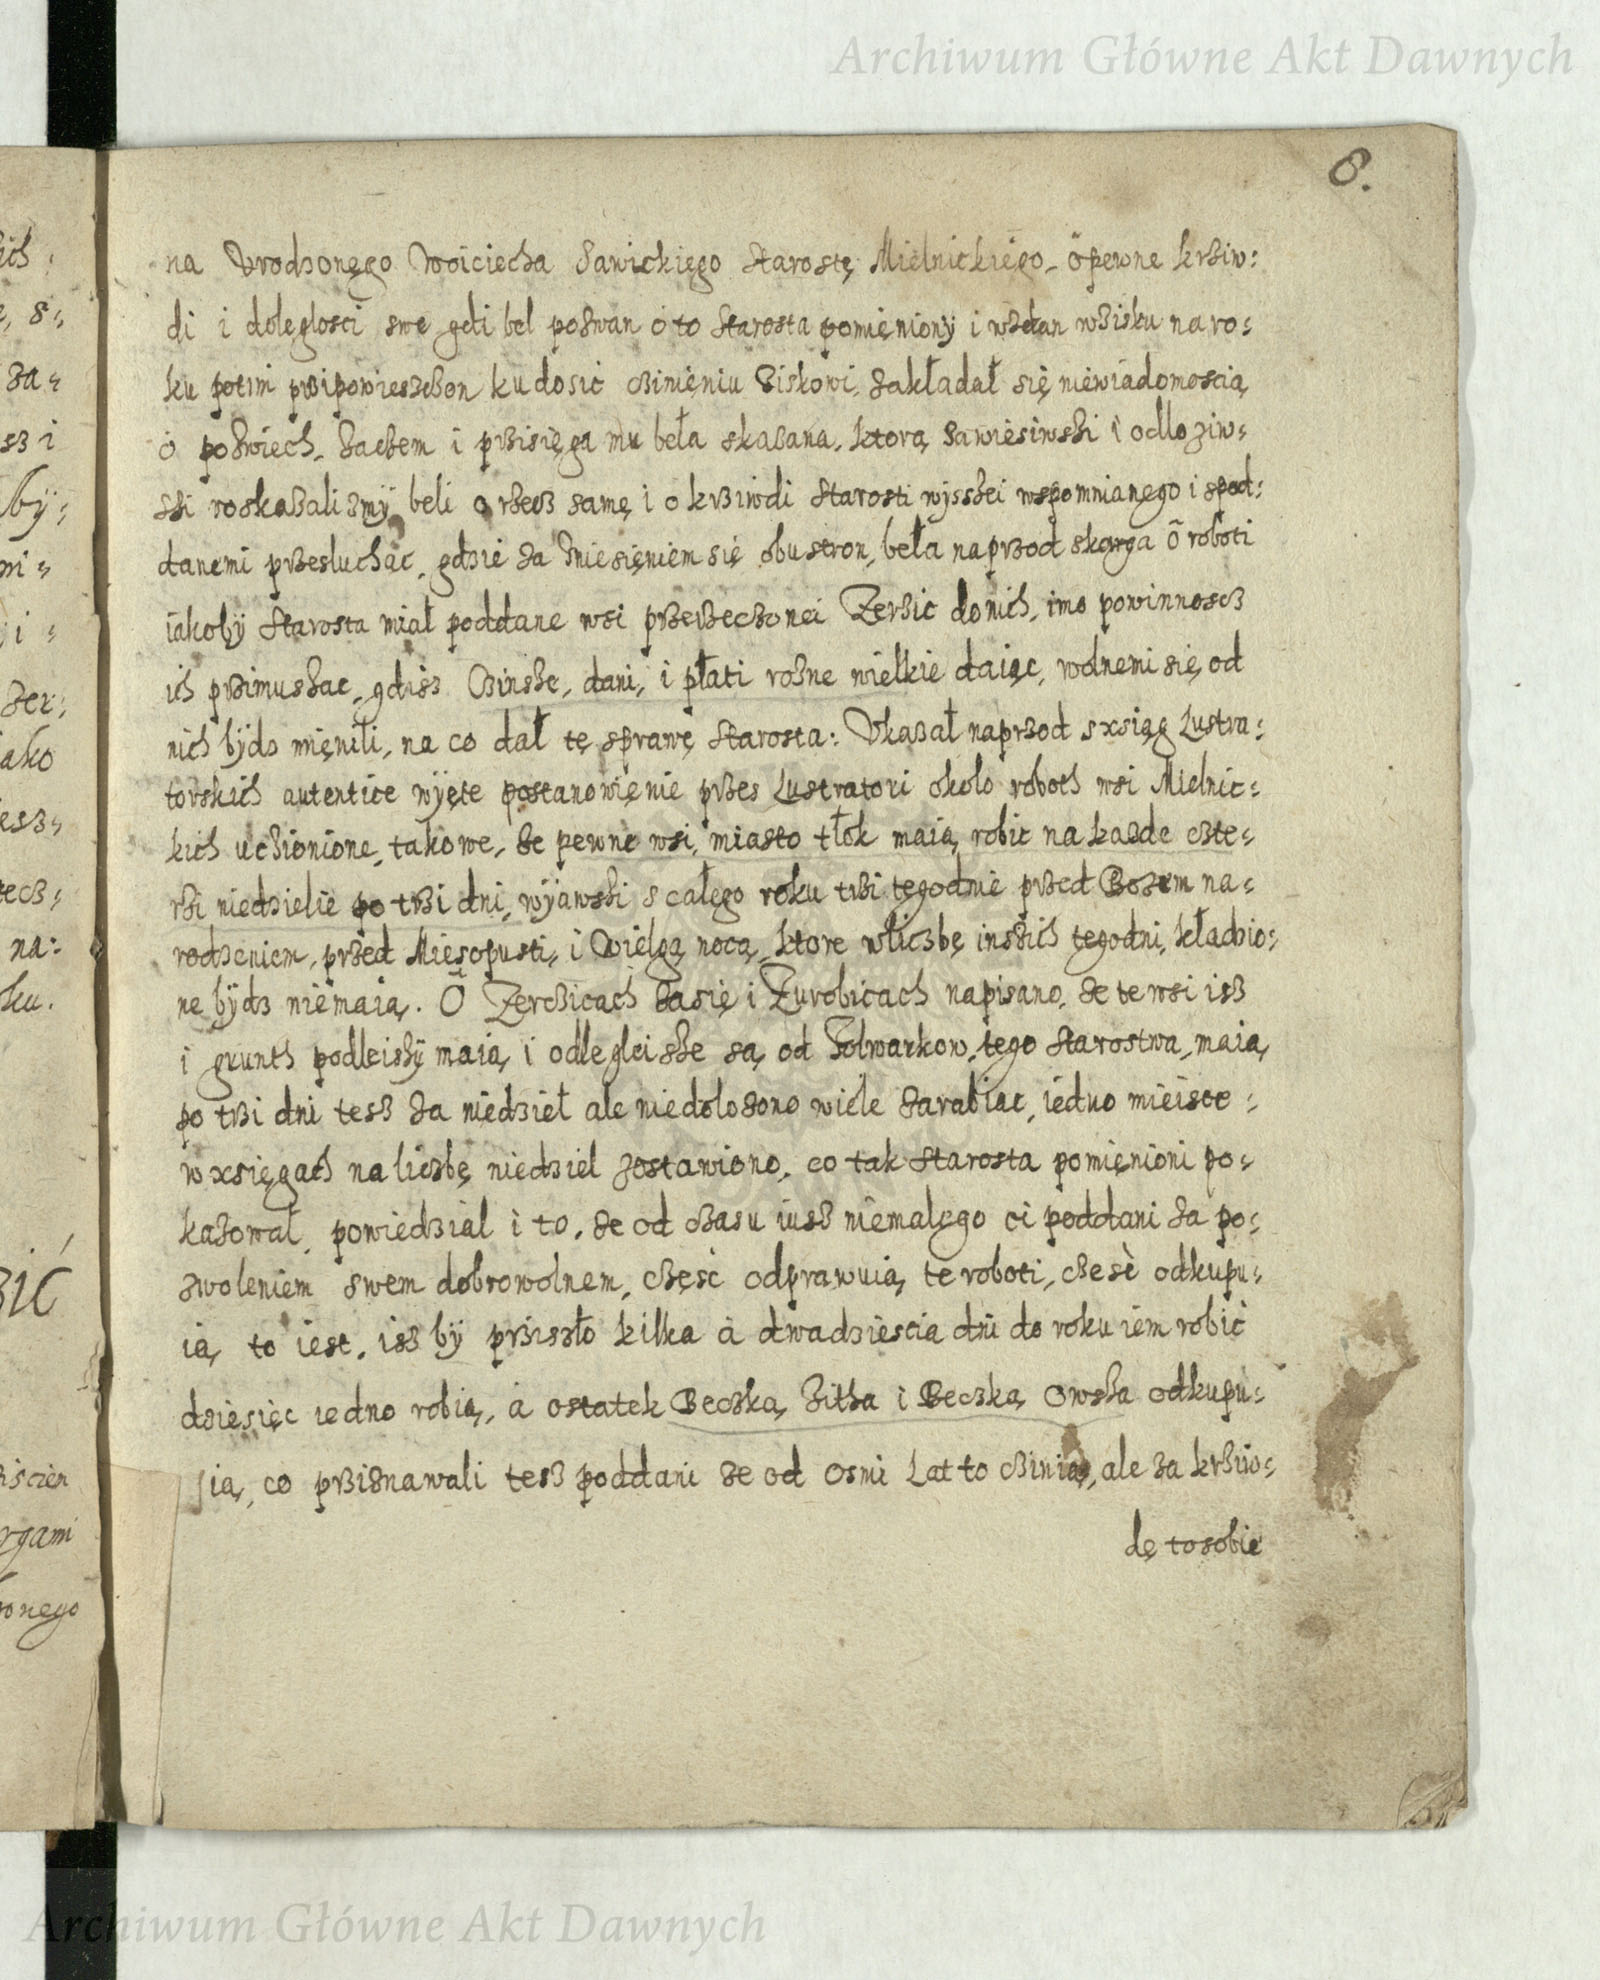 Archiwum Główne Akt Dawnych
8.
na Vrodzonęgo Woiciecha Sawickięgo Starostę Mielnickiego, o pewne krziw:
di i dolęglosci swe gdi bel pozwan o to Starosta pomięniony i wzdan wzisku na ro:
ku potim przipowieszczon ku dosic czinięniu ziskowi, zakładał się niewiadomoscią
o pozwiech, zaczem i przisięga mu beła skazana, ktorą zawiesiwszi i odloziw:
szi roskazalizmÿ beli o rzecz samę i o krziwdi Starosti wÿsszei wspomnianego i spod:
danemi przesluchac, gdzie za zniesięniem się obu stron, beła naprzod skarga o roboti
iakobÿ Starosta miał poddane wsi przerzeczonei Zerzic do nich, imo powinnoscz
ich przimuszac, gdisz Czinsze, dani, i płati rozne wielkie daiąc, wolnemi się od
nich bÿdz mięnili, na co dał tę sprawę Starosta: Vkazał naprzod s xsiąg Lustra:
torskich autentice wÿęte postanowięnie przes Lustratori okolo roboth wsi Mielnic:
kich uczionione, takowe, ze pewne wsi, miasto tłok maią robic na kazde czte:
rzi niedzielie po trzi dni, wÿiąwszi s całęgo roku trzi tęgodnie przed Bozem na:
rodzeniem, przed Mięsopusti, i Wielgą nocą, ktore w liczbę inszich tegodni, kładzio:
ne bÿdz niemaią. O Zerczicach zasię i Zurobicach napisano, ze te wsi isz
i grunth podleiszÿ maią i odlegleisze są od Folwarkow tego Starostwa, maią
po trzi dni tesz za niedziel ale niedolozono wiele zarabiac, iedno mieisce:
w xsięgach na liczbę niedziel zostawiono, co tak Starosta pomięnioni po:
kazował, powiedzial i to, ze od czasu iusz niemalęgo ci poddani za po:
zwoleniem swem dobrowolnem, częsć odprawuią te roboti, częsć odkupu:
ią to iest, isz bÿ prziszło kilka a dwadziescia dni do roku iem robić
dziesięc iedno robią, a ostatek Beczką Zitha i Beczką Owsza odkupu:
ią, co prziznawali tesz poddani ze od osmi Lat to czinią, ale za krziw:
dę to sobie
Archiwum Główne Akt Dawnych